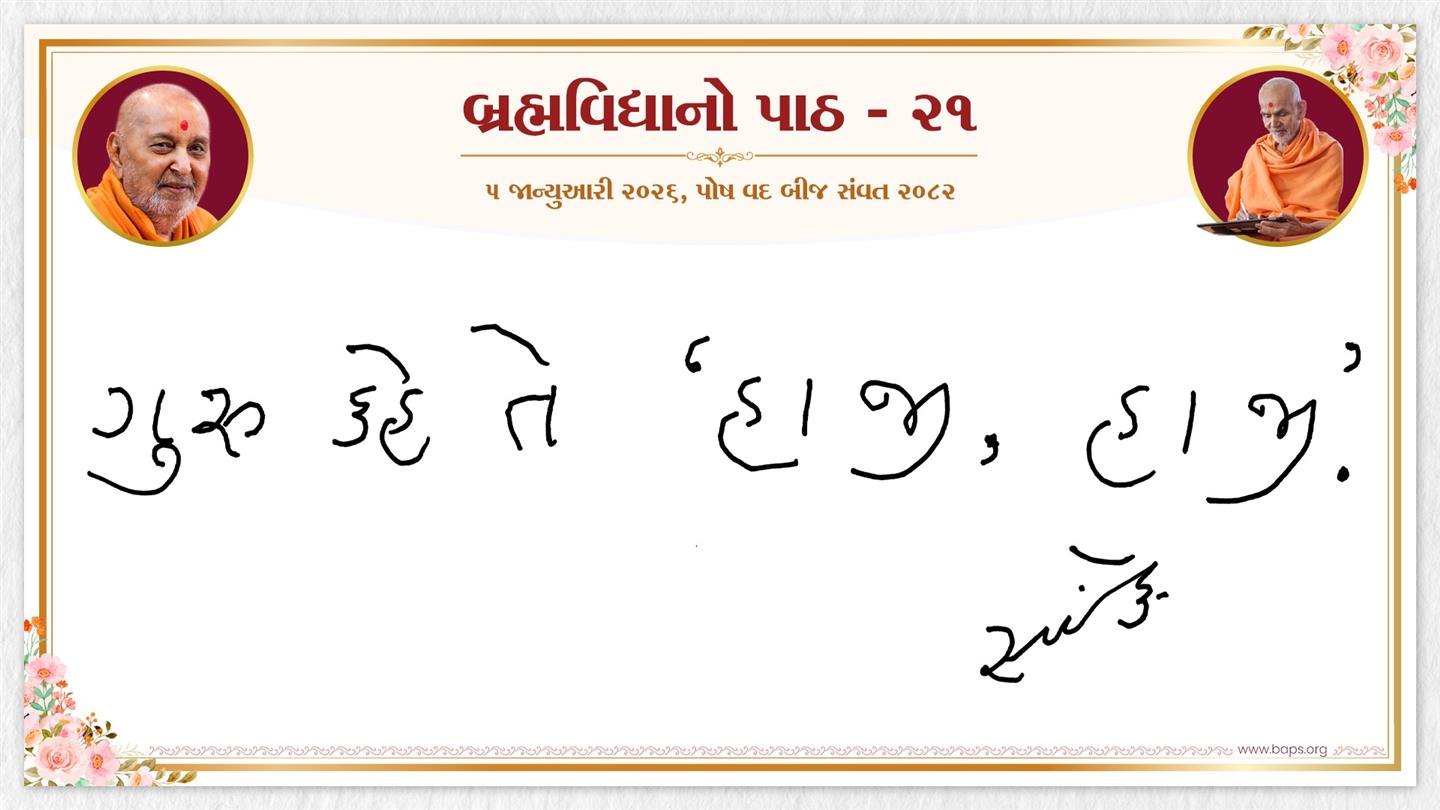 બ્રહ્મવિદ્યાનો પાઠ - ૨૧
૫ જાન્યુઆરી ૨૦૨૬, પોષ વદ બીજ સંવત ૨૦૮૨
ગુરુ કહે તે ‘હાજી, હાજી.’
www.baps.org